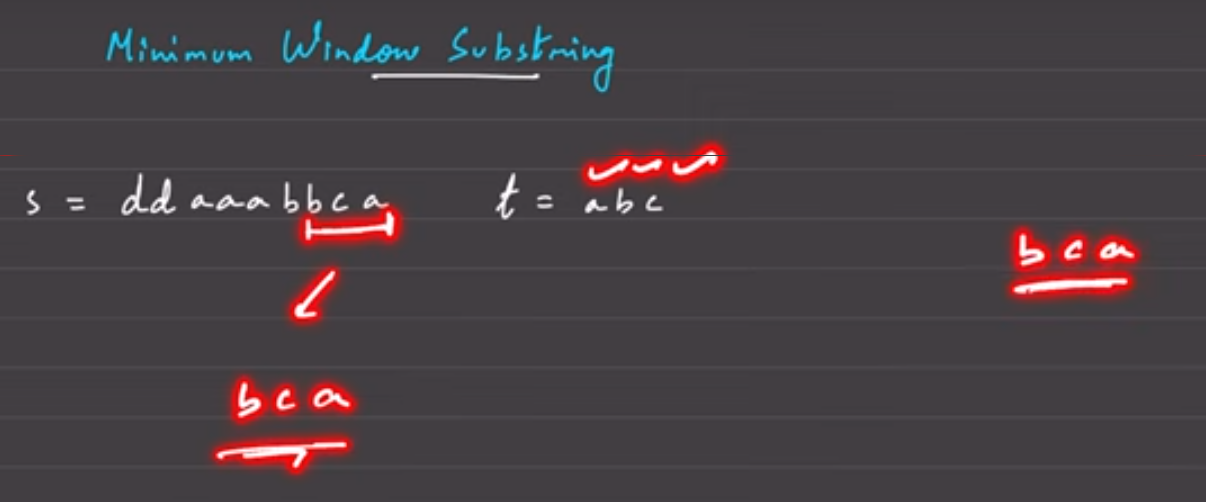 Minimum Window Substring
s = ddaaabbca t = abc
bca
bca